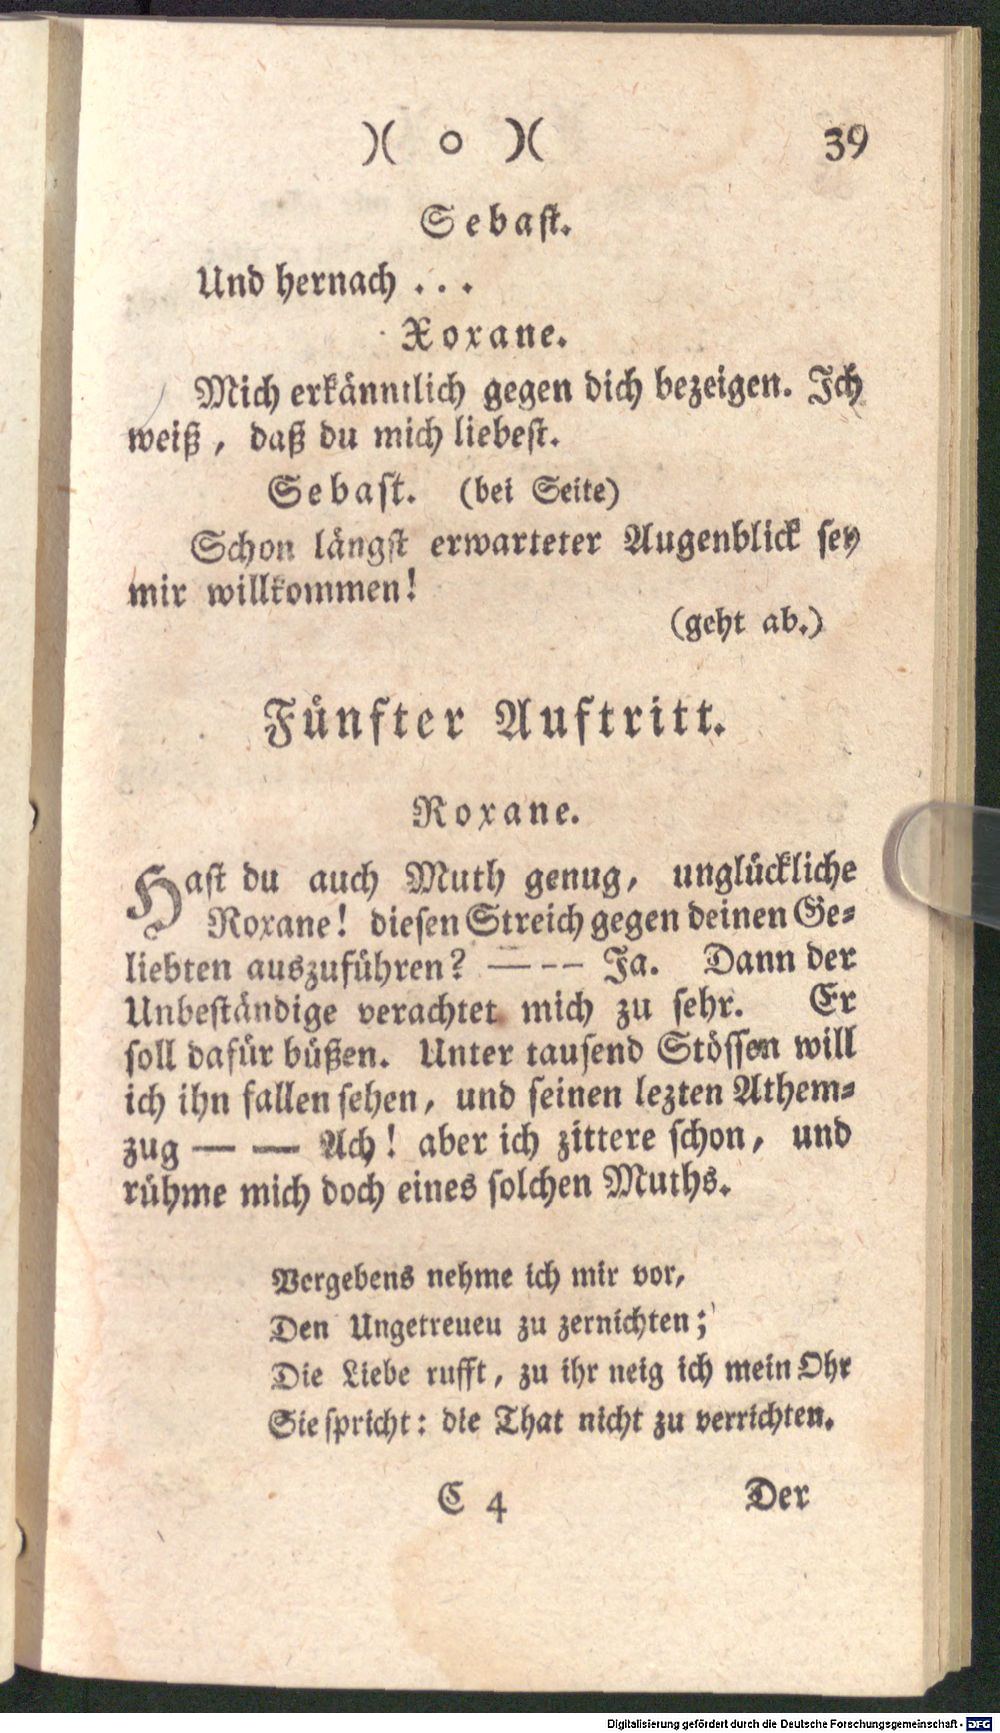 )( o )( 39
Sebast.
Und hernach . . .
Roxane.
Mich erkänntlich gegen dich bezeigen. Ich
weiß, daß du mich liebest.
Sebast. (bei Seite)
Schon längst erwarteter Augenblick sey
mir willkommen!
(geht ab.)
Fünfter Auftritt.
Roxane.
Hast du auch Muth genug, unglückliche
Roxane! diesen Streich gegen deinen Ge-
liebten auszuführen? — – – Ja. Dann der
Unbeständige verachtet mich zu sehr. Er
soll dafür büßen. Unter tausend Stössen will
ich ihn fallen sehen, und seinen lezten Athem-
zug — — Ach! aber ich zittere schon, und
rühme mich doch eines solchen Muths.
Vergebens nehme ich mir vor,
Den Ungetreueu zu zernichten;
Die Liebe rufft, zu ihr neig ich mein Ohr
Sie spricht: die That nicht zu verrichten.
C 4 Der
Digitalisierung gefördert durch die Deutsche Forschungsgemeinschaft - DFG